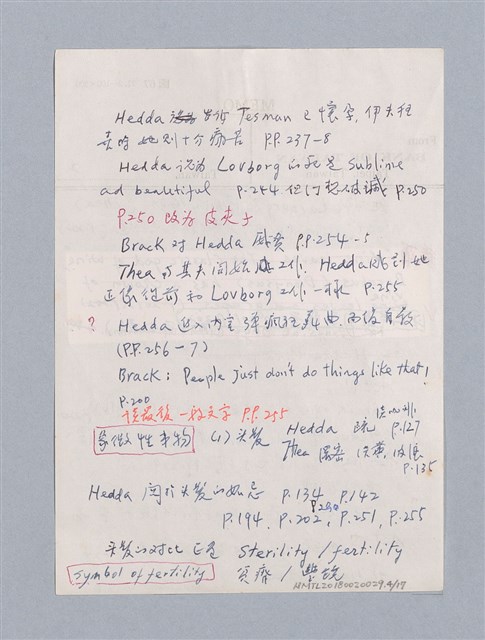 Hedda 告訴 Tesman 已懷孕,伊夫狂
喜時她則十分痛苦 P.P. 237-8
Hedda 認為 Lovborg 的死是 Sublime
ad beautiful P.254 但 P.250
P.250 改為皮夾子
Brack 對 Hedda P.P. 254-5
Thea 與其夫開始工作. Hedda 感到她
正像從前和 Lovborg 工作一樣 P.255
? Hedda 進入內室彈瘋狂舞曲,而後自殺
(P.P. 256-7)
Brack: People just don't do things like that!
P.200
P.P. 255
象徵性事物 (1) 头髮 Hedda 疏 P.127
Thea 濃密 淡黃,波浪
P.135
Hedda 関於头髮的妒忌 P.134 P.142
P.200
P.194, P.202, P.251, P.255
头髮的对比正是 Sterility / fertility
symbol of fertility 貧瘠 /
HMTL20180020029.4/17